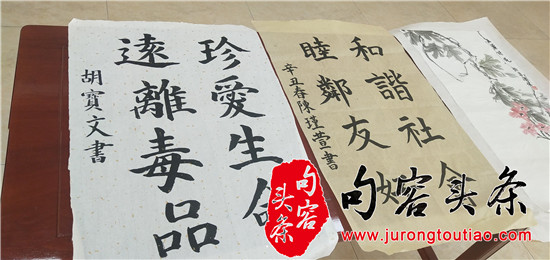 珍愛生命
遠離毒品
胡寶文書
和諧社會
睦鄰友好
辛丑春陳瑾萱書
句容
头条
句容头条
www.jurongtoutiao.com